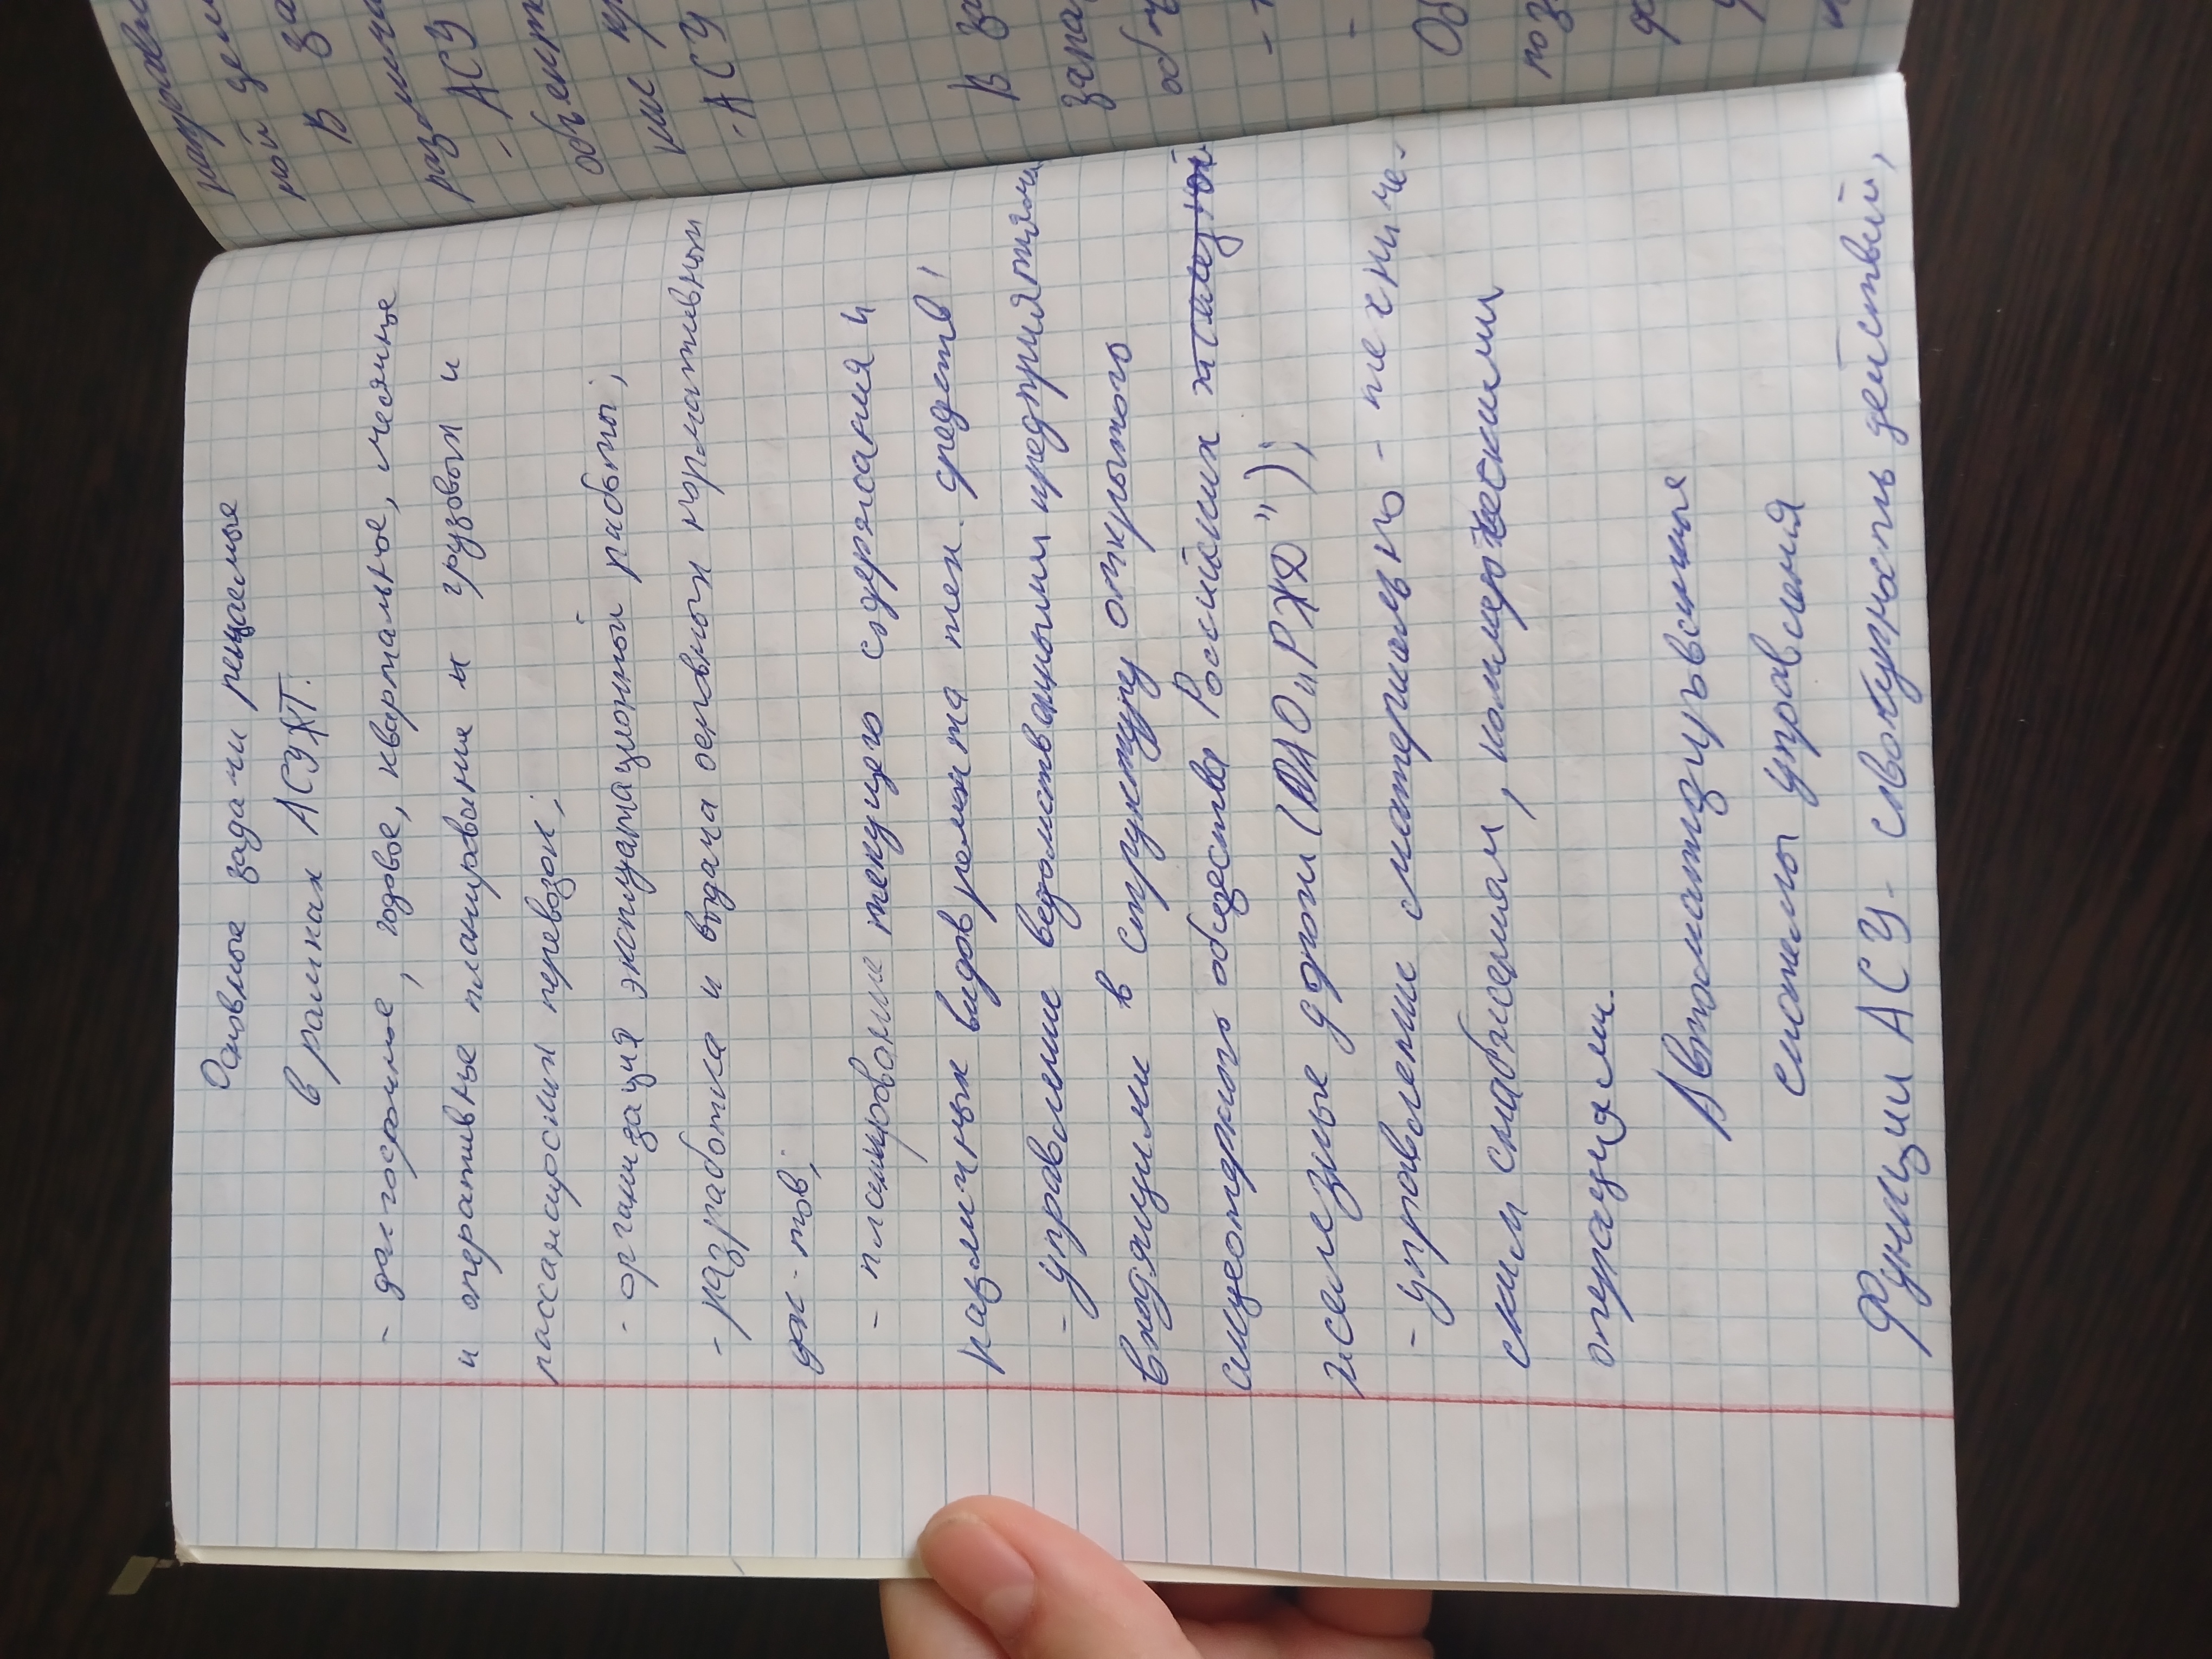 Основные задачи решаемые
в рамках АСУЖТ.
- долгосрочное, годовое, квартальное, месячное
и оперативное планирование и грузовых и
пассажирских перевозок;
- организация эксплуатационной работы;
- разработка и выдача основных нормативных
док-тов;
- планирование текущего содержания и
различных видов ремонта тех. средств;
- управление ведомственными предприятиями
входящими в структуру открытого
акционерного общества Российских
железные дороги (ОАО "РЖД");
- управление материально-техниче-
ским снабжением, коммерческими
операциями.
Автоматизированные
системы управления
Функции АСУ - совокупность действий,
направлен
ной дея
В за
различа
- АСУ
объект
ние пр
- АСУ
В за
запа
об
Об
поз